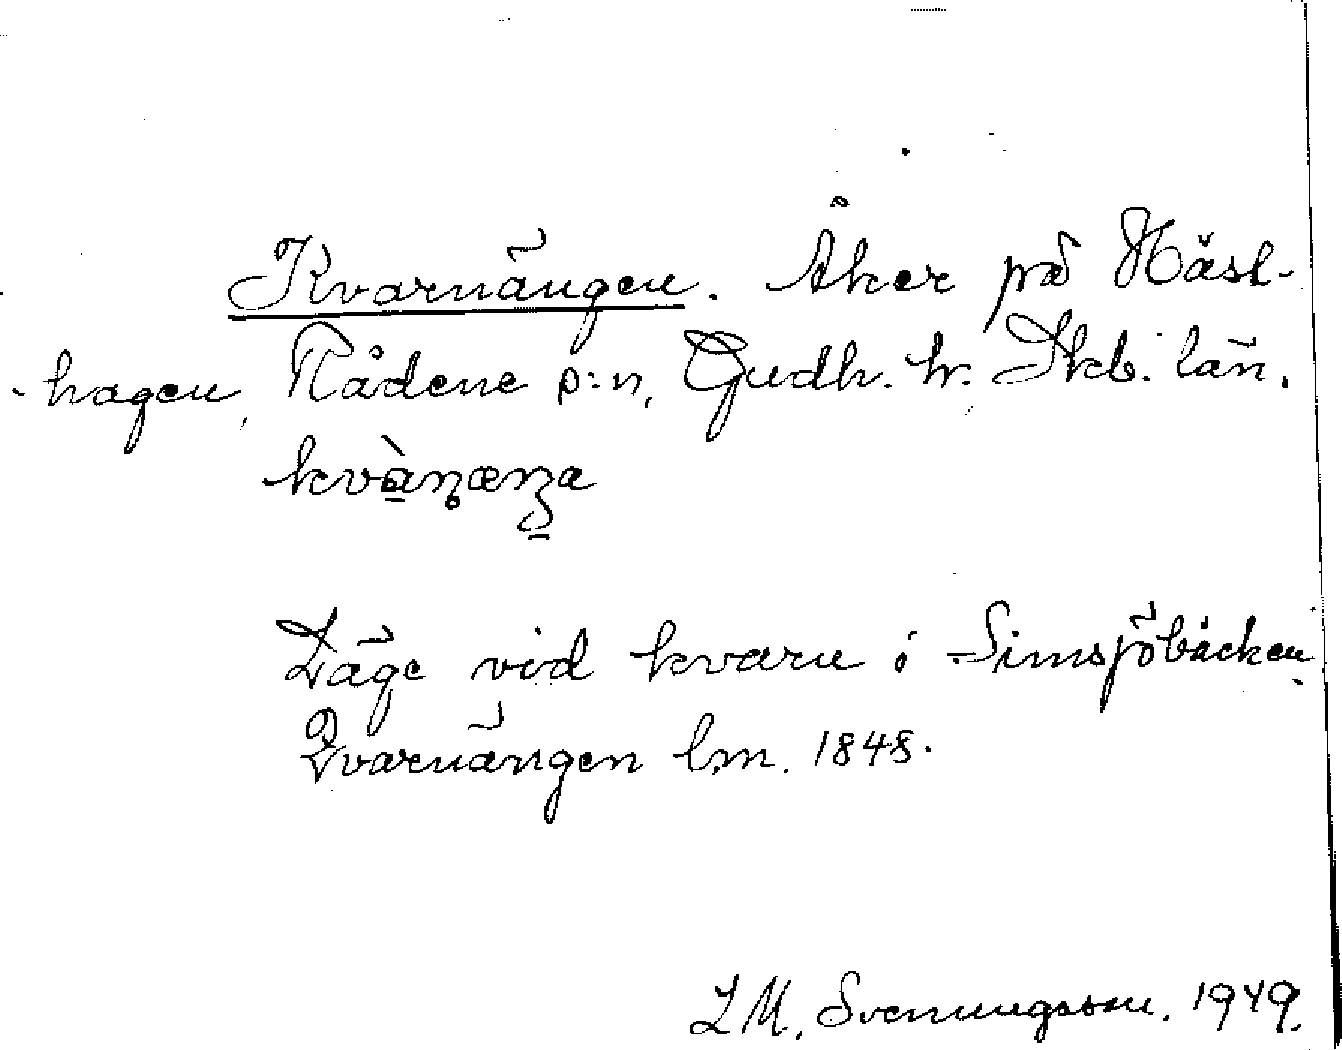 Kvarnängen. Åker på Häst-
-hagen, Rådene s:n, Gudh. hr. Skb. län.
kvàṇænga
Läge vid kvarn i Simsjöbäcken
Qvarnängen lm. 1848.
L M. Svenungsson. 1949.